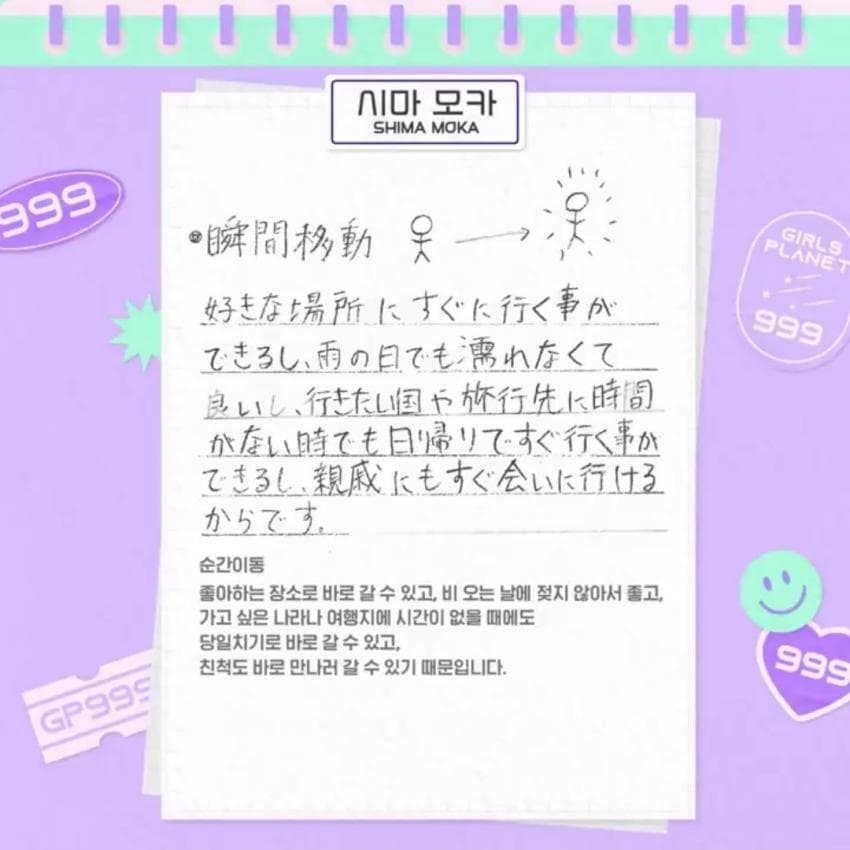 시마 모카
SHIMA MOKA
999
GIRLS
PLANET
999
瞬間移動
好きな場所にすぐに行く事が
できるし、雨の日でも濡れなくて
良いし、行きたい国や旅行先に時間
がない時でも日帰りですぐ行く事が
できるし、親戚にもすぐ会いに行ける
からです。
순간이동
좋아하는 장소로 바로 갈 수 있고, 비 오는 날에 젖지 않아서 좋고,
가고 싶은 나라나 여행지에 시간이 없을 때에도
당일치기로 바로 갈 수 있고,
친척도 바로 만나러 갈 수 있기 때문입니다.
GP999
999